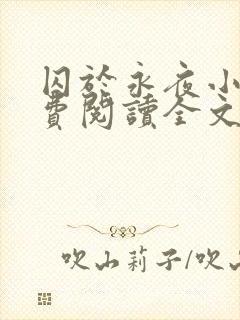 囚於永夜小
費閱讀全文
吹山莉子/吹山